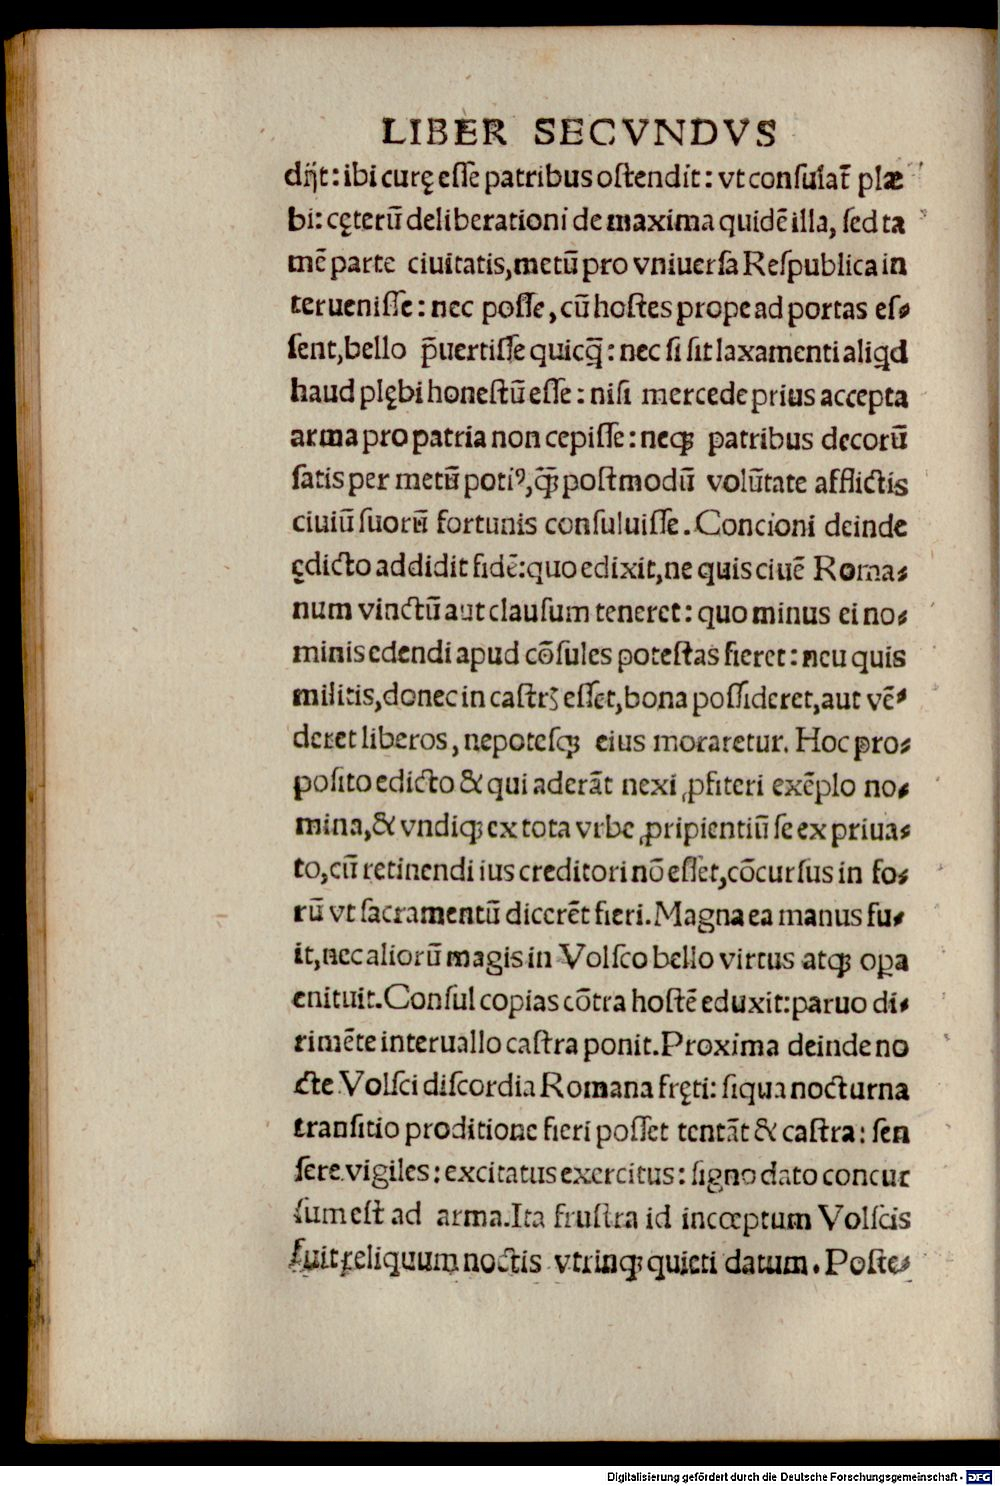 LIBER SECVNDVS
dijt: ibi curę esse patribus ostendit: vt consulat̃ plæ
bi: cęterũ deliberationi de maxima quidẽ illa, sed ta
mẽ parte ciuitatis, metũ pro vniuersa Respublica in
teruenisse: nec posse, cũ hostes prope ad portas es⸗
sent, bello p̃uertisse quicq̃: nec si sit laxamenti aliqd
haud plębi honestũ esse: nisi mercede prius accepta
arma pro patria non cepisse: neqꝫ patribus decorũ
satis per metũ potiꝰ, q̃ postmodũ volũtate afflictis
ciuiũ suorũ fortunis consuluisse. Concioni deinde
ędicto addidit fidẽ: quo edixit, ne quis ciuẽ Roma⸗
num vinctũ aut clausum teneret: quo minus ei no⸗
minis edendi apud cõsules potestas fieret: neu quis
militis, donec in castrꝫ esset, bona possideret, aut vẽ⸗
deret liberos, nepotesqꝫ eius moraretur. Hoc pro⸗
posito edicto & qui aderãt nexi ꝓfiteri exẽplo no⸗
mina, & vndiqꝫ ex tota vrbe ꝓripientiũ se ex priua⸗
to, cũ retinendi ius creditori nõ esset, cõcursus in fo⸗
rũ vt sacramentũ dicerẽt fieri. Magna ea manus fu⸗
it, nec aliorũ magis in Volsco bello virtus atqꝫ oꝑa
enituit. Consul copias cõtra hostẽ eduxit: paruo di⸗
rimẽte interuallo castra ponit. Proxima deinde no
cte Volsci discordia Romana fręti: siqua nocturna
transitio proditione fieri posset tentãt & castra: sen
sere vigiles: excitatus exercitus: signo dato concur
sum est ad arma. Ita frustra id incœptum Volscis
fuit reliquum noctis vtrinqꝫ quieti datum. Poste⸗
Digitalisierung gefördert durch die Deutsche Forschungsgemeinschaft - DFG